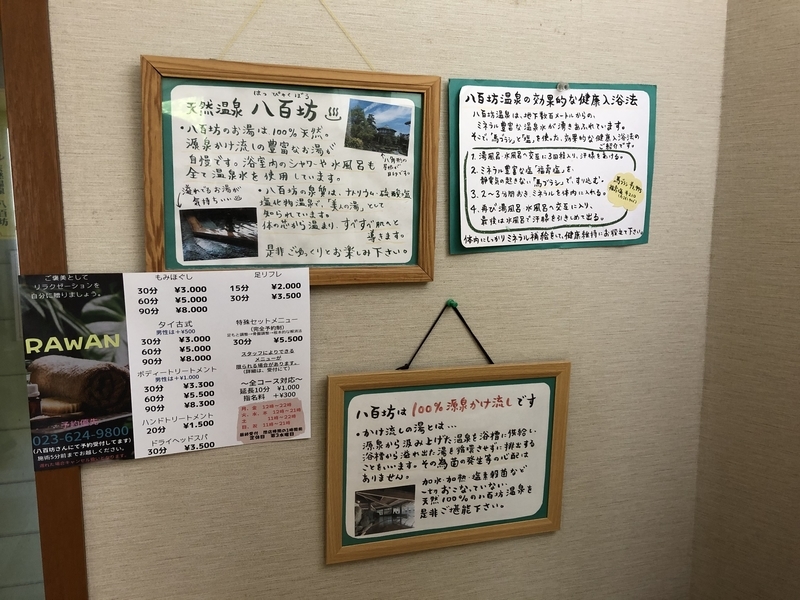 はっぴゃくぼう
天然温泉 八百坊
・八百坊のお湯は100%天然。
源泉かけ流しの豊富なお湯が
自慢です。浴室内のシャワーや水風呂も
全て温泉水を使用しています。
溢れでるお湯が
気持ちいい
・八百坊の泉質は、ナトリウム・硫酸塩
塩化物温泉で、「美人の湯」として
知られています。
体の芯から温まり、すべすべ肌へと
導きます。
是非ごゆっくりとお楽しみ下さい。
八百坊温泉の効果的な健康入浴法
八百坊温泉は、地下数百メートルからの、
ミネラル豊富な温泉水が湧きあふれています。
そこで、「馬ブラシ」と「塩」を使った、効果的な健康入浴法の
ご紹介です。
1. 湯風呂・水風呂へ交互に3回程入り、汗腺をあける。
2. ミネラル豊富な塩「福寿塩」を、
静電気の起きない「馬ブラシ」で、すり込む。
3. 2〜3分間おき、ミネラルを体内に入れる。
4. 再び湯風呂・水風呂へ交互に入り、
最後は水風呂で汗腺を引きしめて出る。
体内にしっかりミネラル補給をして、健康維持にお役立て下さい。
ご褒美として
リラクゼーションを
自分に贈りましょう。
RAWAN
予約優先
023-624-9800
(八百坊さんにて予約受付してます)
施術5分前までお越しください。
もみほぐし
30分 ¥3.000
60分 ¥5.000
90分 ¥8.000
タイ古式
男性は+¥500
30分 ¥3.000
60分 ¥5.000
90分 ¥8.000
ボディートリートメント
男性は+¥1.000
30分 ¥3.300
60分 ¥5.500
90分 ¥8.300
ハンドトリートメント
20分 ¥1.500
ドライヘッドスパ
30分 ¥3.500
足リフレ
15分 ¥2.000
30分 ¥3.500
特殊セットメニュー
(完全予約制)
30分 ¥5.500
スタッフによりできる
メニューが
限られる場合があります。
(詳細は、受付にて)
〜全コース対応〜
延長10分 ¥1.000
指名料 +¥300
八百坊は100%源泉かけ流しです
・かけ流しの湯とは…
源泉から汲み上げた温泉を浴槽に供給し
浴槽から溢れ出た湯を循環させずに排出する
ことをいいます。その為菌の発生等の心配は
ありません。
加水・加熱・塩素殺菌など
一切おこなっていない
天然100%の八百坊温泉を
是非ご堪能下さい。